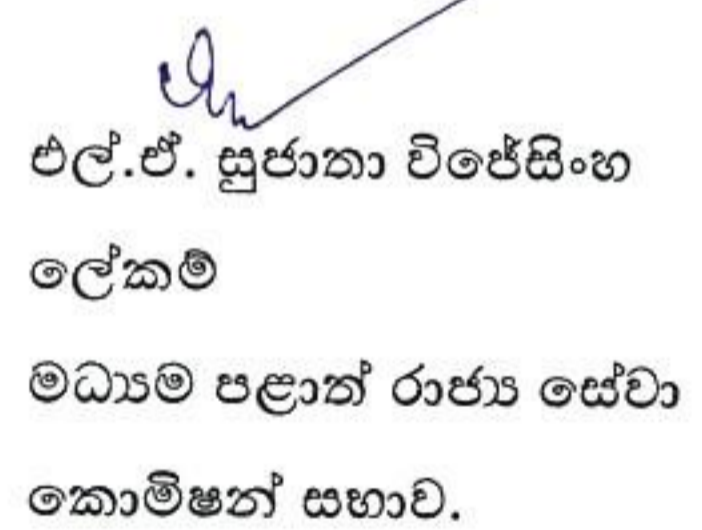 එල්.ඒ. සුජාතා විජේසිංහ
ලේකම්
මධ්‍යම පළාත් රාජ්‍ය සේවා
කොමිෂන් සභාව.